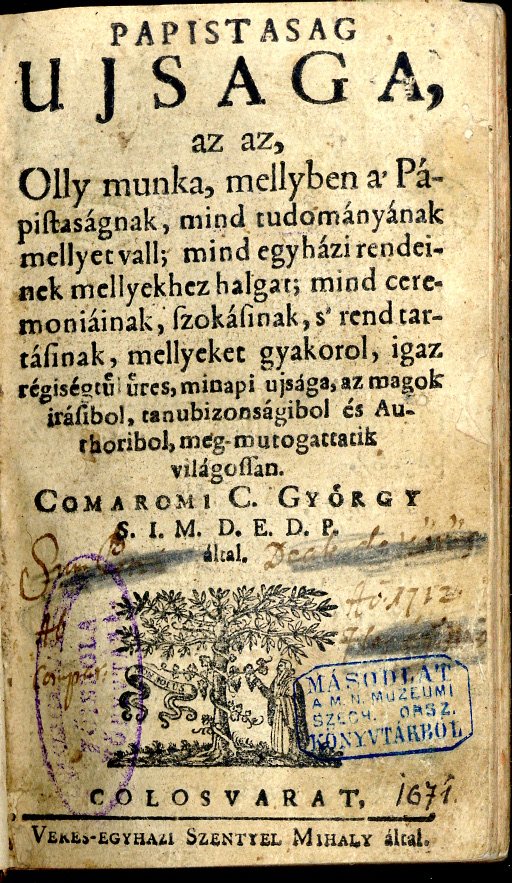 PAPISTASAG
UJSAGA,
az az,
Olly munka, mellyben a' Pá-
piſtaságnak, mind tudományának
mellyet vall; mind egyházi rendei-
nek mellyekhez halgat; mind cere-
moniáinak, ſzokáſinak, s' rend tar-
táſinak, mellyeket gyakorol, igaz
régiségtűl űres, minapi ujsága, az magok
iráſibol, tanubizonságibol és Au-
thoribol, meg-mutogattatik
világoſſan.
COMAROMI C. GYÖRGY
S. I. M. D. E. D. P.
által.
Aō 1712.
MÁSODLAT
A M. N. MUZEUMI
SZÉCH. ORSZ.
KÖNYVTÁRBÓL
COLOSVARAT, 1671.
VERES-EGYHAZI SZENTYEL MIHALY által.